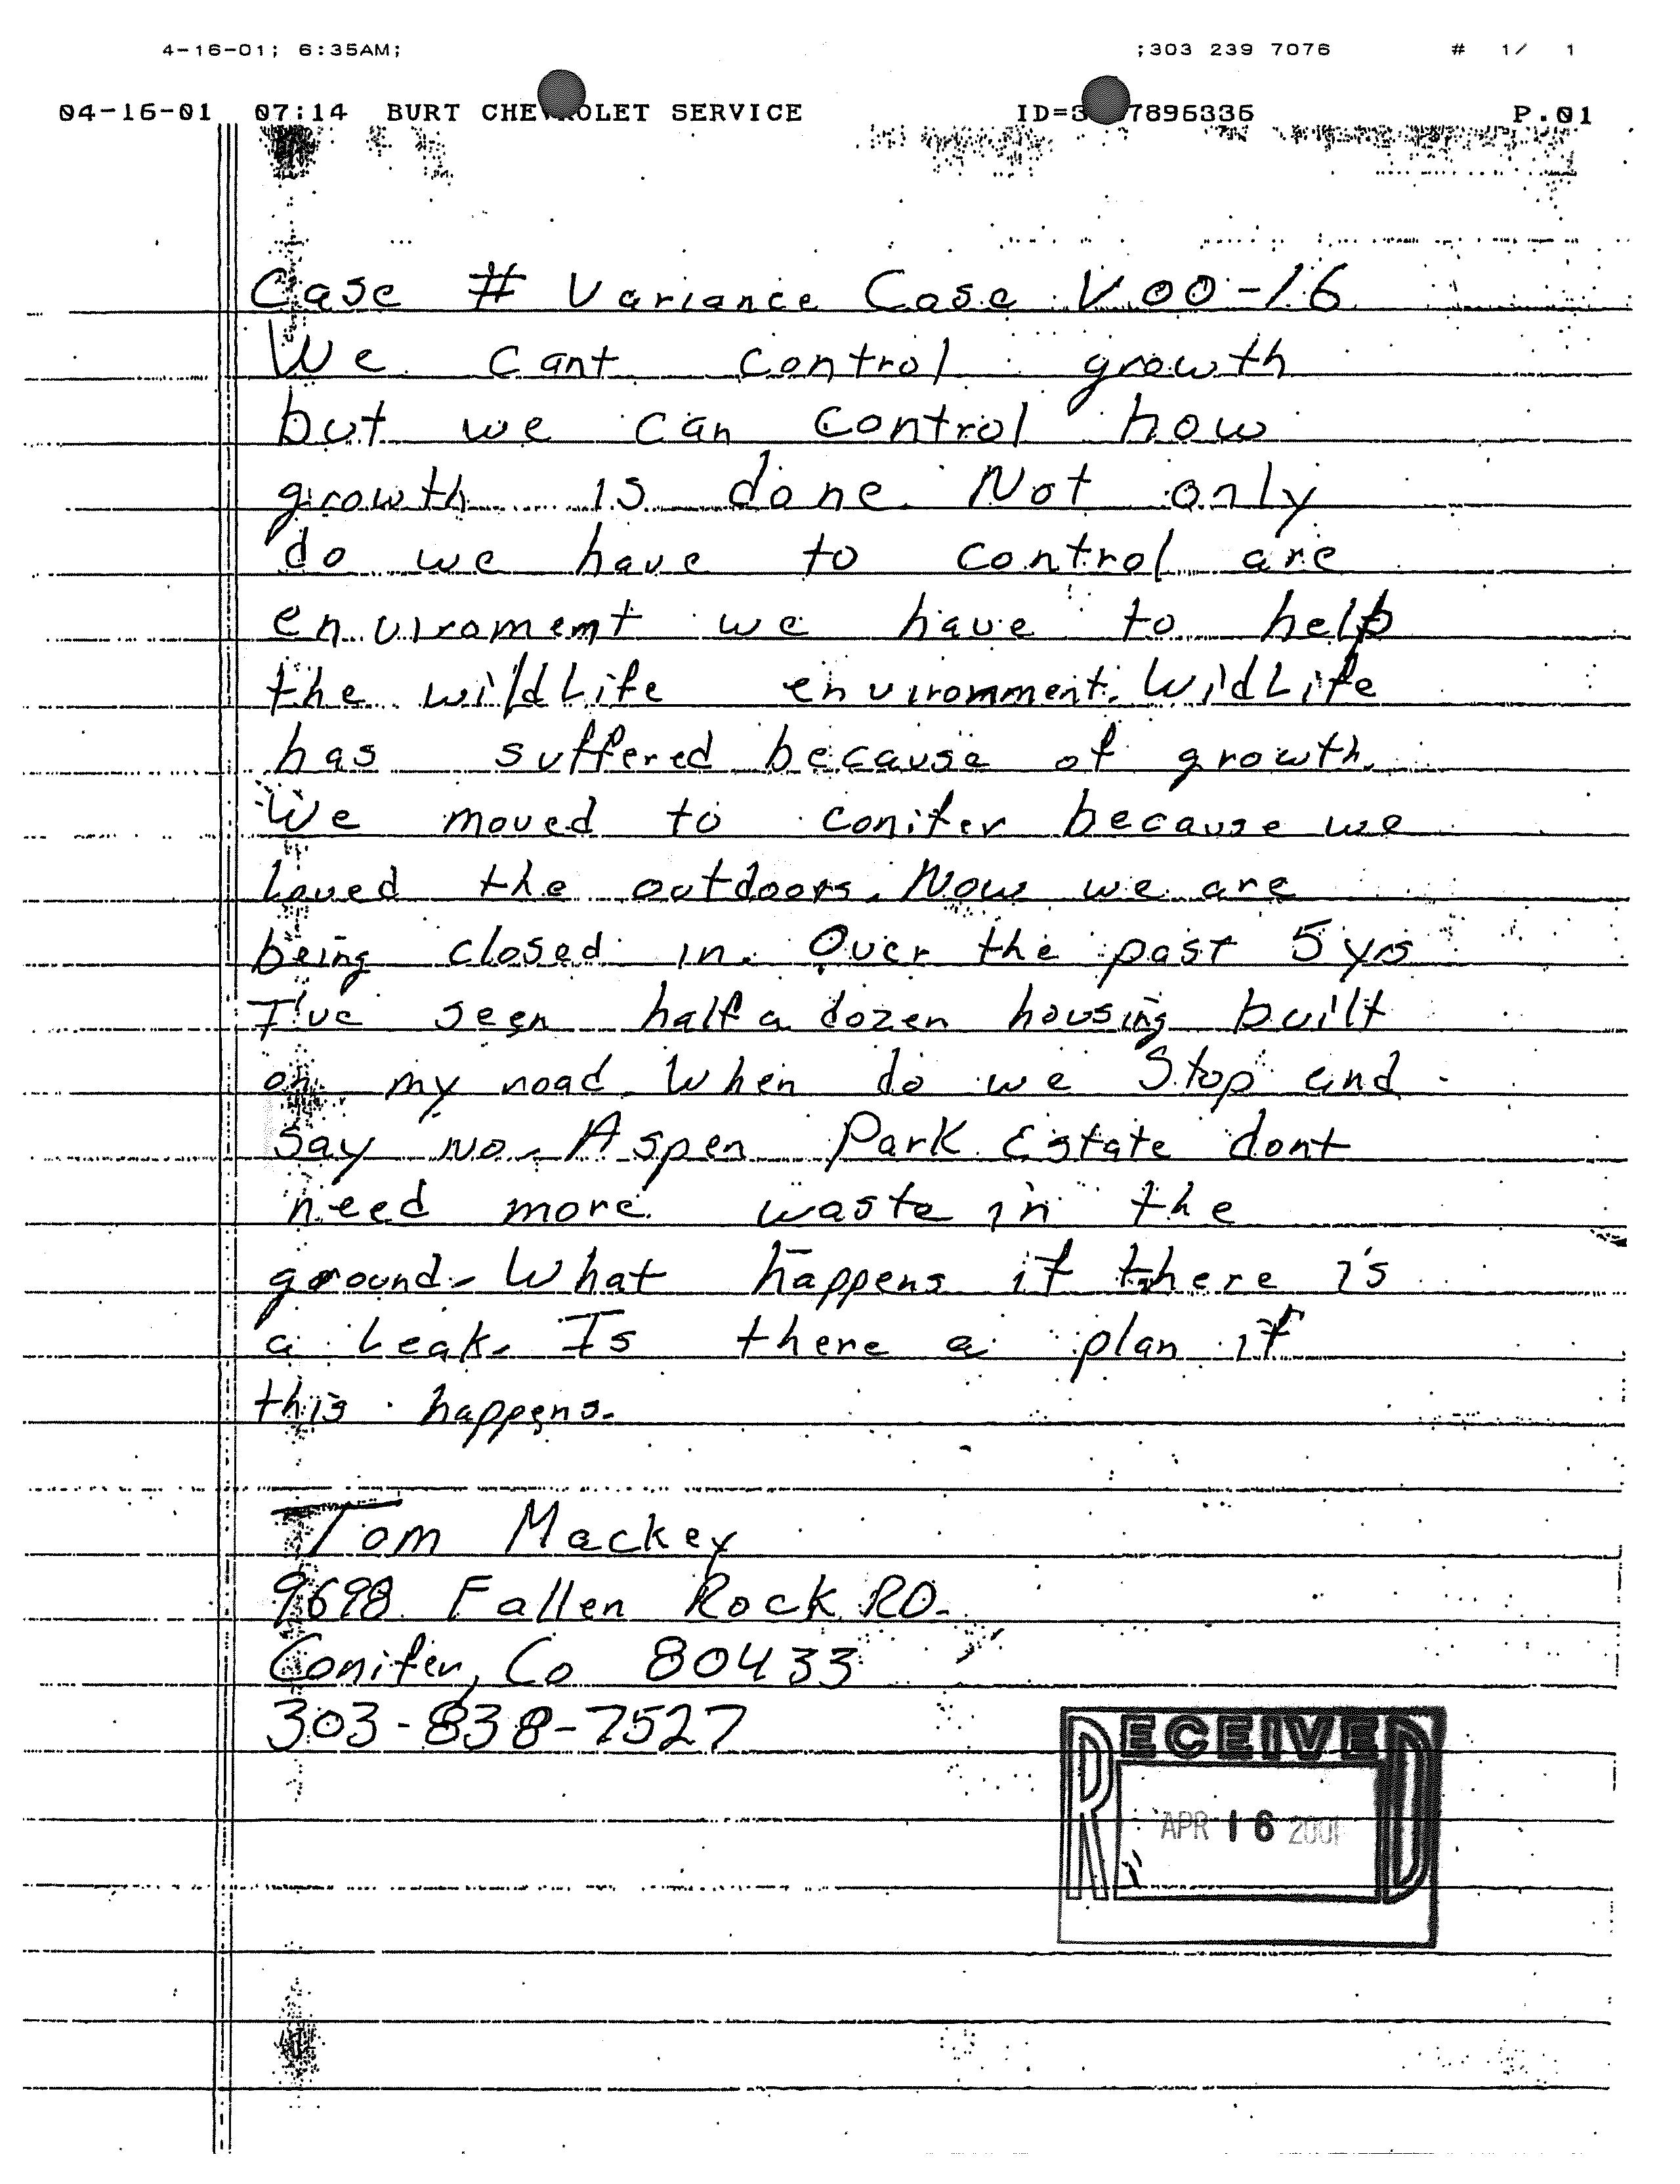 4-16-01; 6:35AM; ;303 239 7076 # 1/ 1
04-16-01 07:14 BURT CHEVROLET SERVICE ID=3 7896336 P.01
Case # Variance Case V00-16
We cant control growth
but we can control how
growth is done. Not only
do we have to control are
enviroment we have to help
the wildLife enviromment. WildLife
has suffered because of growth.
We moved to conifer because we
Loved the outdoors. Now we are
being closed in. Over the past 5 yrs
I've seen half a dozen housing built
on my road. When do we Stop and
say no. Aspen Park Estate dont
need more waste in the
ground. What happens if there is
a Leak. Is there a plan if
this happens.
Tom Mackey
9698 Fallen Rock RD.
Conifer, Co 80433
303-838-7527
RECEIVED
APR 16 2001